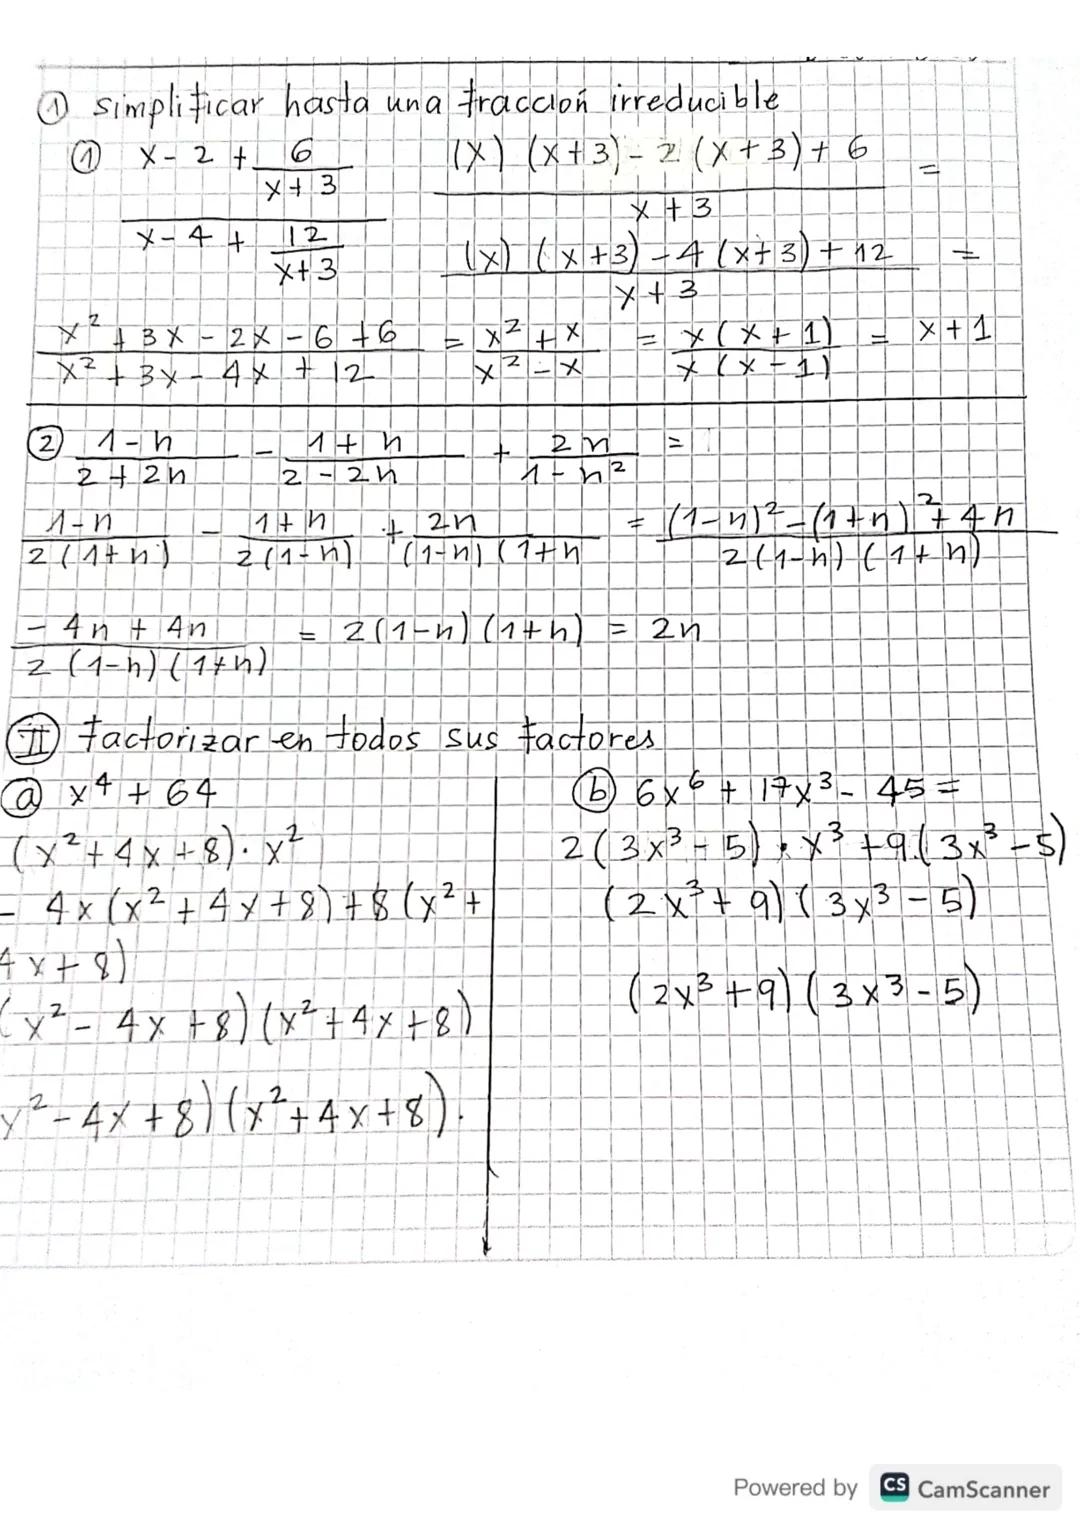 ① simplificar hasta una fracción irreducible
① x - 2 + 6/(x + 3) (x) (x+3) - 2 (x+3) + 6 =
x + 3
x - 4 + 12/(x+3) (x) (x+3) - 4 (x+3) + 12 =
x + 3
x² + 3x - 2x - 6 + 6 = x² + x = x (x + 1) = x + 1
x² + 3x - 4x + 12 x² - x x (x - 1)
② 1 - n - 1 + n + 2n =
2 + 2n 2 - 2n 1 - n²
1-n - 1+n + 2n = (1-n)² - (1+n)² + 4n
2 (1+n) 2 (1-n) (1-n) (1+n 2 (1-n) (1+n)
- 4n + 4n = 2 (1-n) (1+n) = 2n
2 (1-n) (1+n)
Ⅱ factorizar en todos sus factores
ⓐ x⁴ + 64
(x² + 4x + 8) · x²
- 4x (x² + 4x + 8) + 8 (x² +
4x + 8)
(x² - 4x + 8) (x² + 4x + 8)
x² - 4x + 8) (x² + 4x + 8).
ⓑ 6x⁶ + 17x³ - 45 =
2 (3x³ - 5) · x³ + 9 · (3x³ - 5)
(2x³ + 9) (3x³ - 5)
(2x³ + 9) (3x³ - 5)
Powered by CS CamScanner